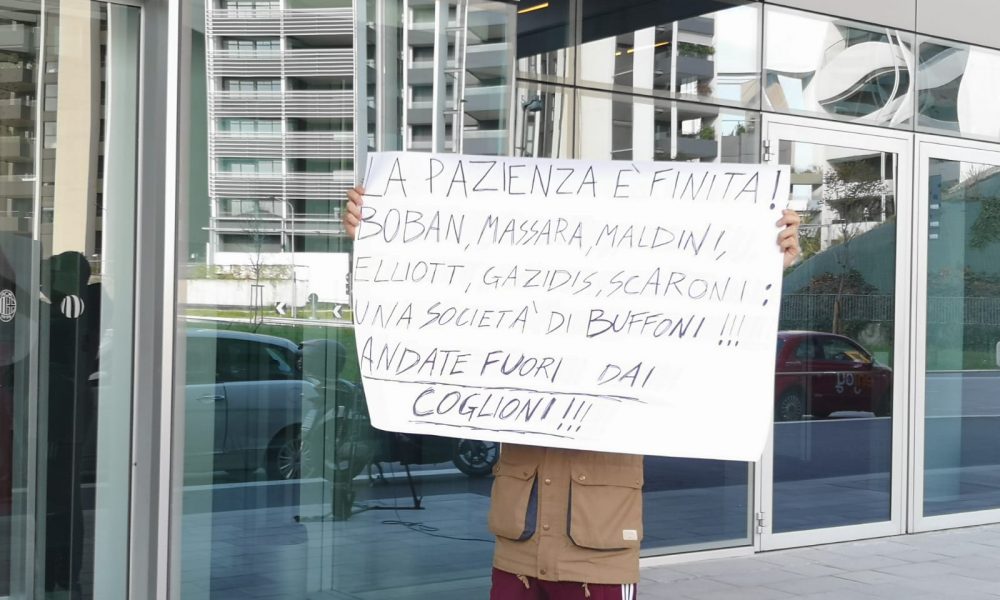 LA PAZIENZA È FINITA!
BOBAN, MASSARA, MALDINI,
ELLIOTT, GAZIDIS, SCARONI:
UNA SOCIETÀ DI BUFFONI!!!
ANDATE FUORI DAI
COGLIONI!!!